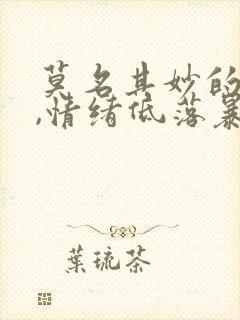 莫名其妙的
,情绪低落暴
葉琉茶